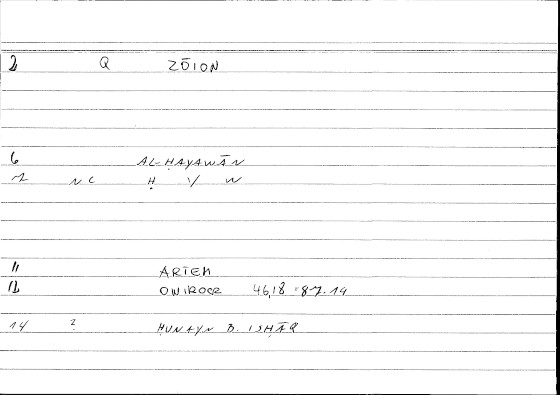 2 Q ZŌION
6 AL-ḤAYAWĀN
7 NC Ḥ Y W
11 ARTEM
12 ONIROCR 46,18 = 87.19
14 ? ḤUNAYN B. ISḤĀQ